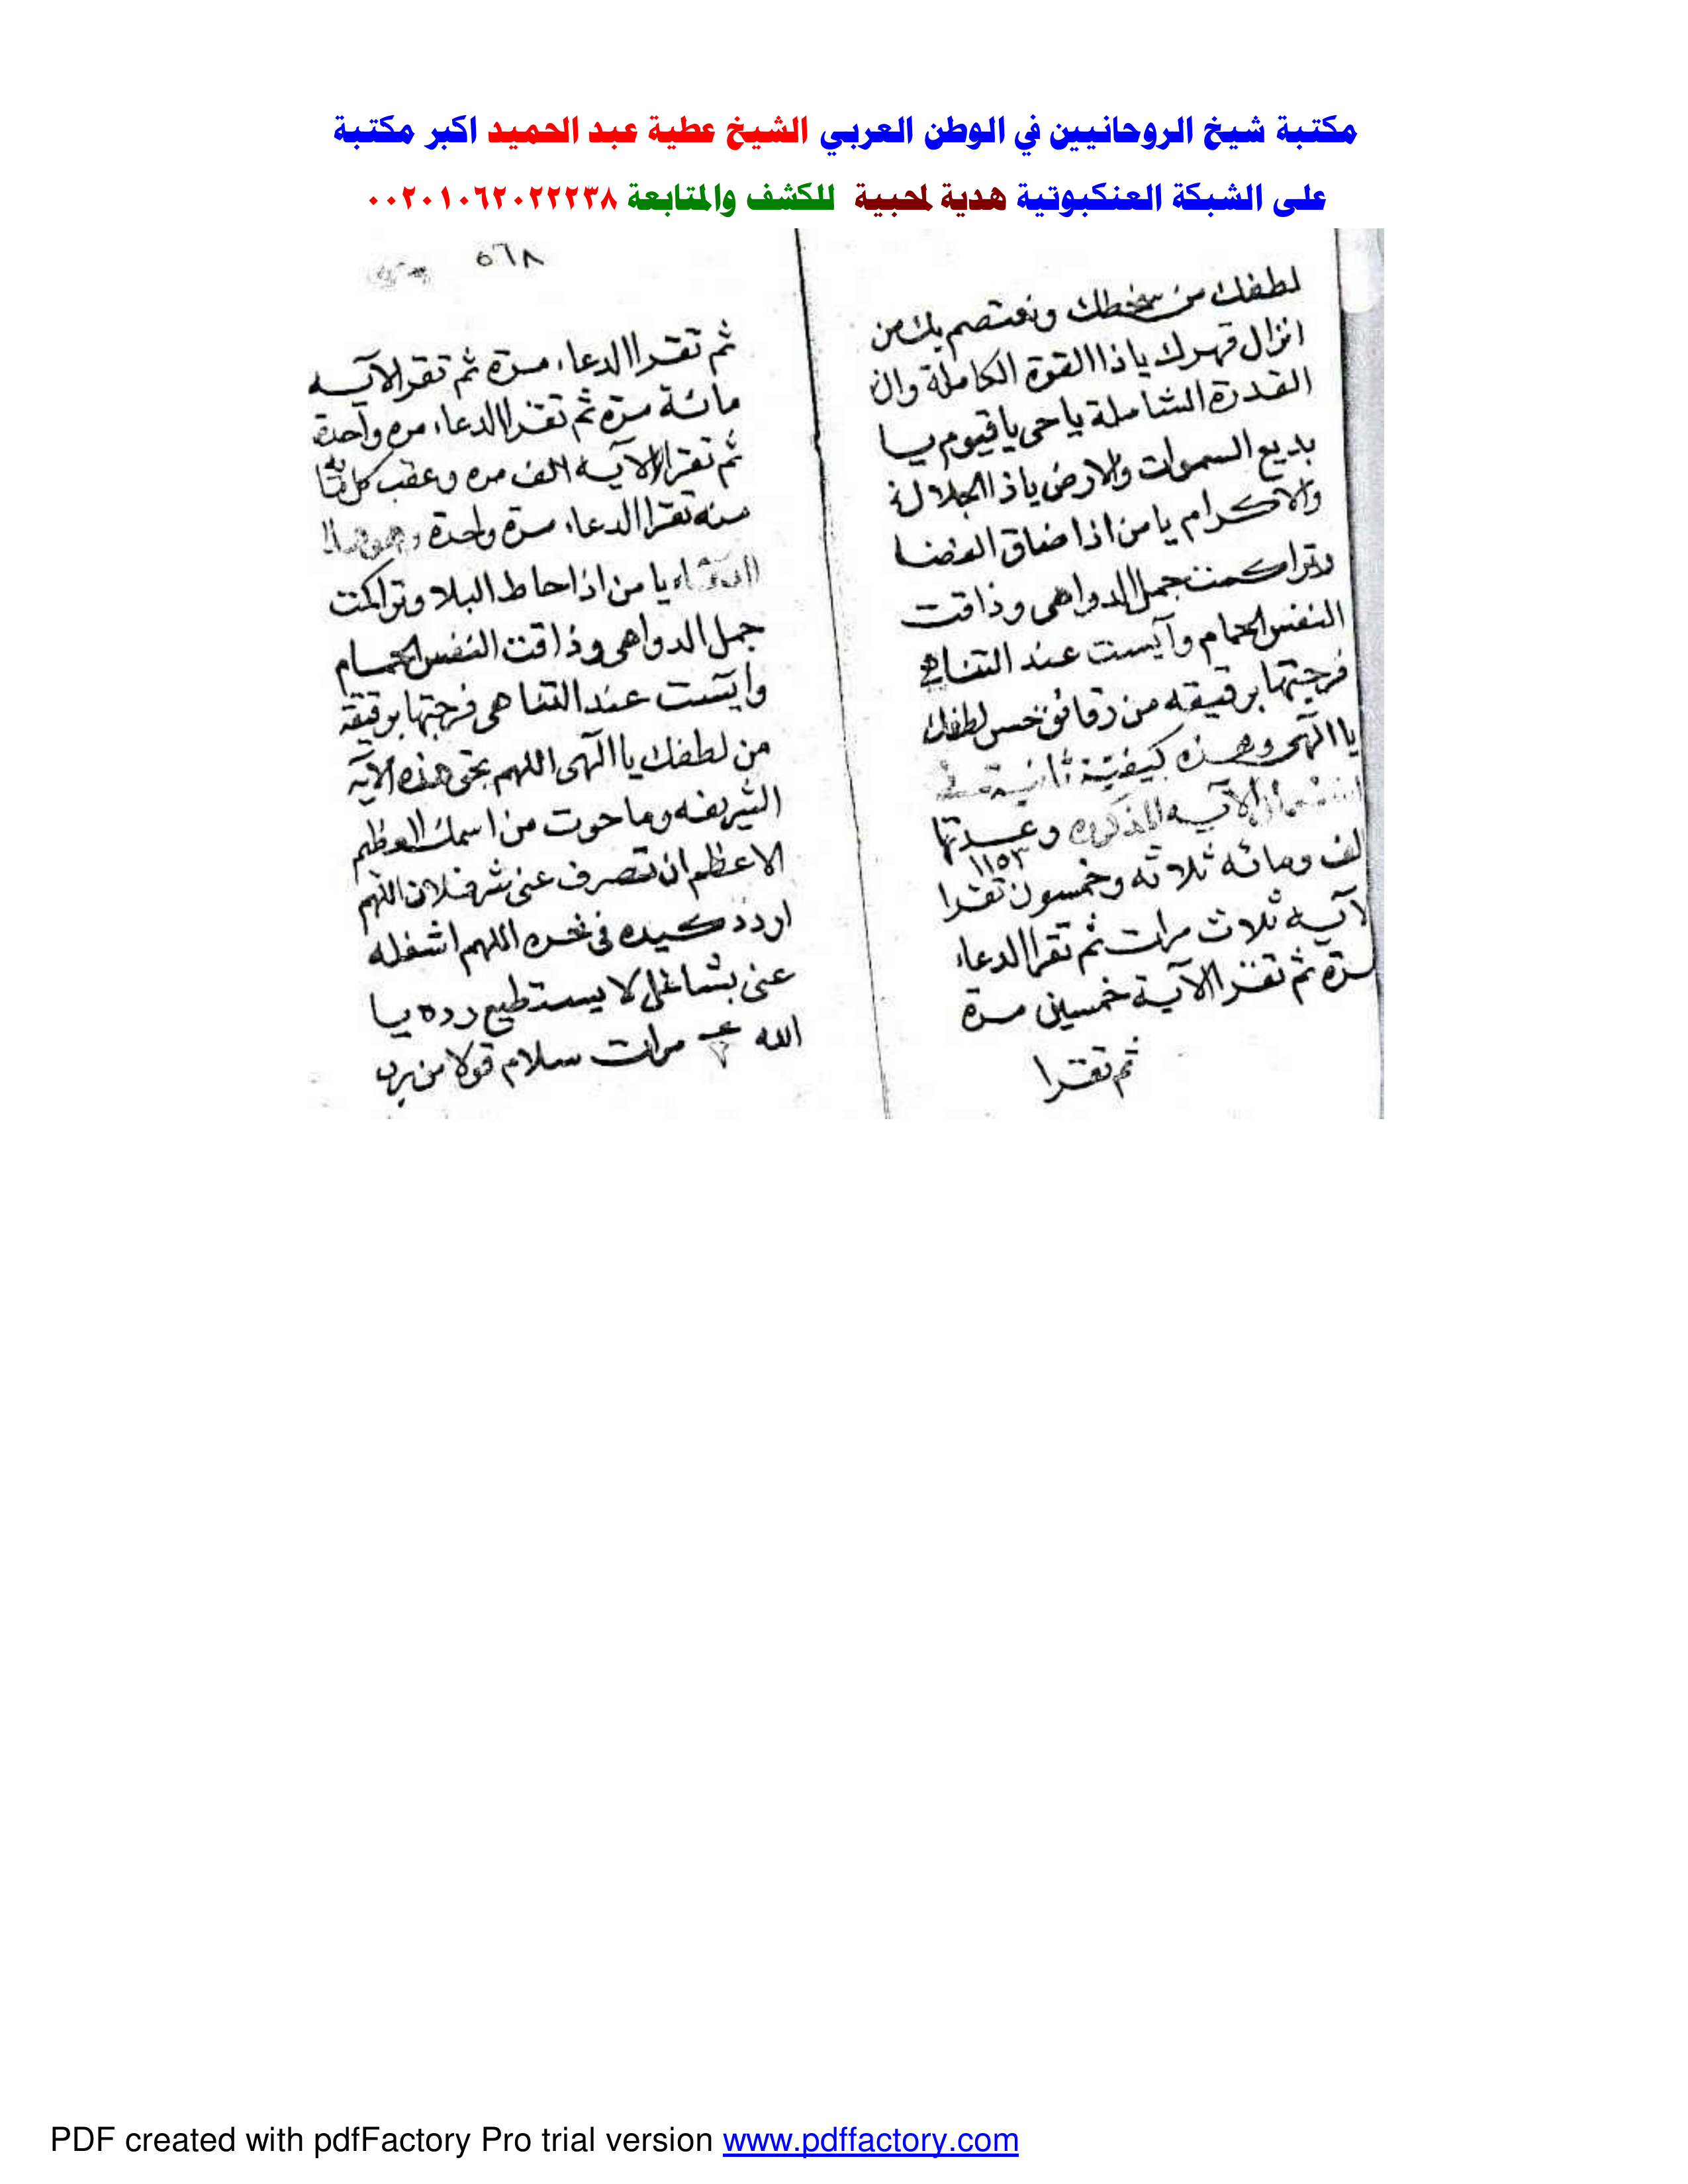 مكتبة شيخ الروحانيين في الوطن العربي الشيخ عطية عبد الحميد اكبر مكتبة
على الشبكة العنكبوتية هدية لمحبية للكشف والمتابعة ٠٠٢٠١٠٦٢٠٢٢٢٣٨
لطفك من سخطك ونعتصم بك من
انزال قهرك ياذا القوة الكاملة وان
القدرة الشاملة ياحى ياقيوم يا
بديع السموات والارض ياذا الجلال
والاكرام يا من اذا ضاق الفضا
وتراكمت جمل الدواهى وذاقت
النفس الحمام وآيست عند التناهى
فرجتها برقيقه من رقائق لطفك
يا الهى وهذه كيفية ثانية
الآيه المذكوره وعدتها
١١٥٣
لف ومائه ثلاثه وخمسون تقرا
لآيه ثلاث مرات ثم تقرا الدعاء
مرة ثم تقرا الآية خمسين مرة
ثم تقرا
٥٦٨
ثم تقرا الدعاء مرة ثم تقرا الآيه
مائة مرة ثم تقرا الدعاء مره واحدة
ثم تقرا الآيه الف مره وعقب كل
منه تقرا الدعاء مرة واحدة وهو هذا
يا من اذا حاط البلا وتراكمت
جمل الدواهى وذاقت النفس الحمام
وايست عند التناهى فرجتها برقيقة
من لطفك يا الهى اللهم بحق هذه الآيه
الشريفه وما حوت من اسمك العظيم
الاعظم ان تصرف عنى شر فلان اللهم
اردد كيده فى نحره اللهم اشغله
عنى بشاغل لا يستطيع رده يا
الله مرات سلام قولا من رب
PDF created with pdfFactory Pro trial version www.pdffactory.com